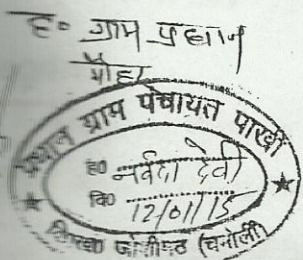 ह० ग्राम प्रधान
प्रधान ग्राम पंचायत पाखी
ह० नर्वदा देवी
दि० 12/01/15
जोशीमठ (चमोली)